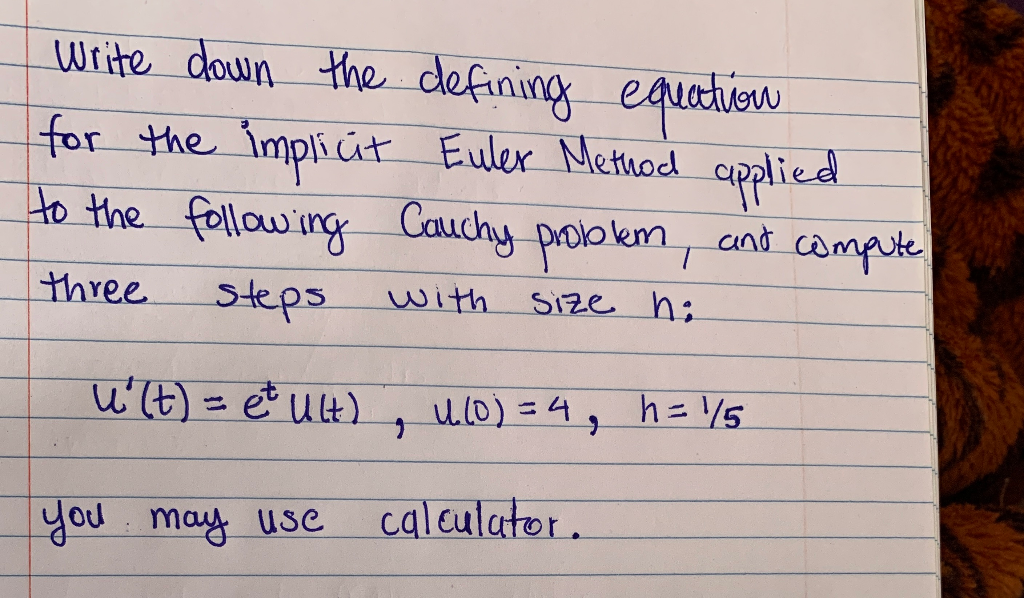 Write down the defining equation
for the implicit Euler Method applied
to the following Cauchy problem, and compute
three steps with size h:
u'(t) = e^t u(t) , u(0) = 4 , h = 1/5
you may use calculator.